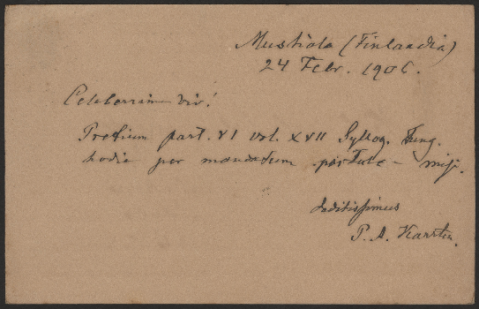 Mustiala (Finlandia)
24 Febr. 1906.
Celeberrime vir!
Pretium part. VI vol. XVII Syllog. Fung.
hodie per mandatum postale misi.
deditissimus
P. A. Karsten.